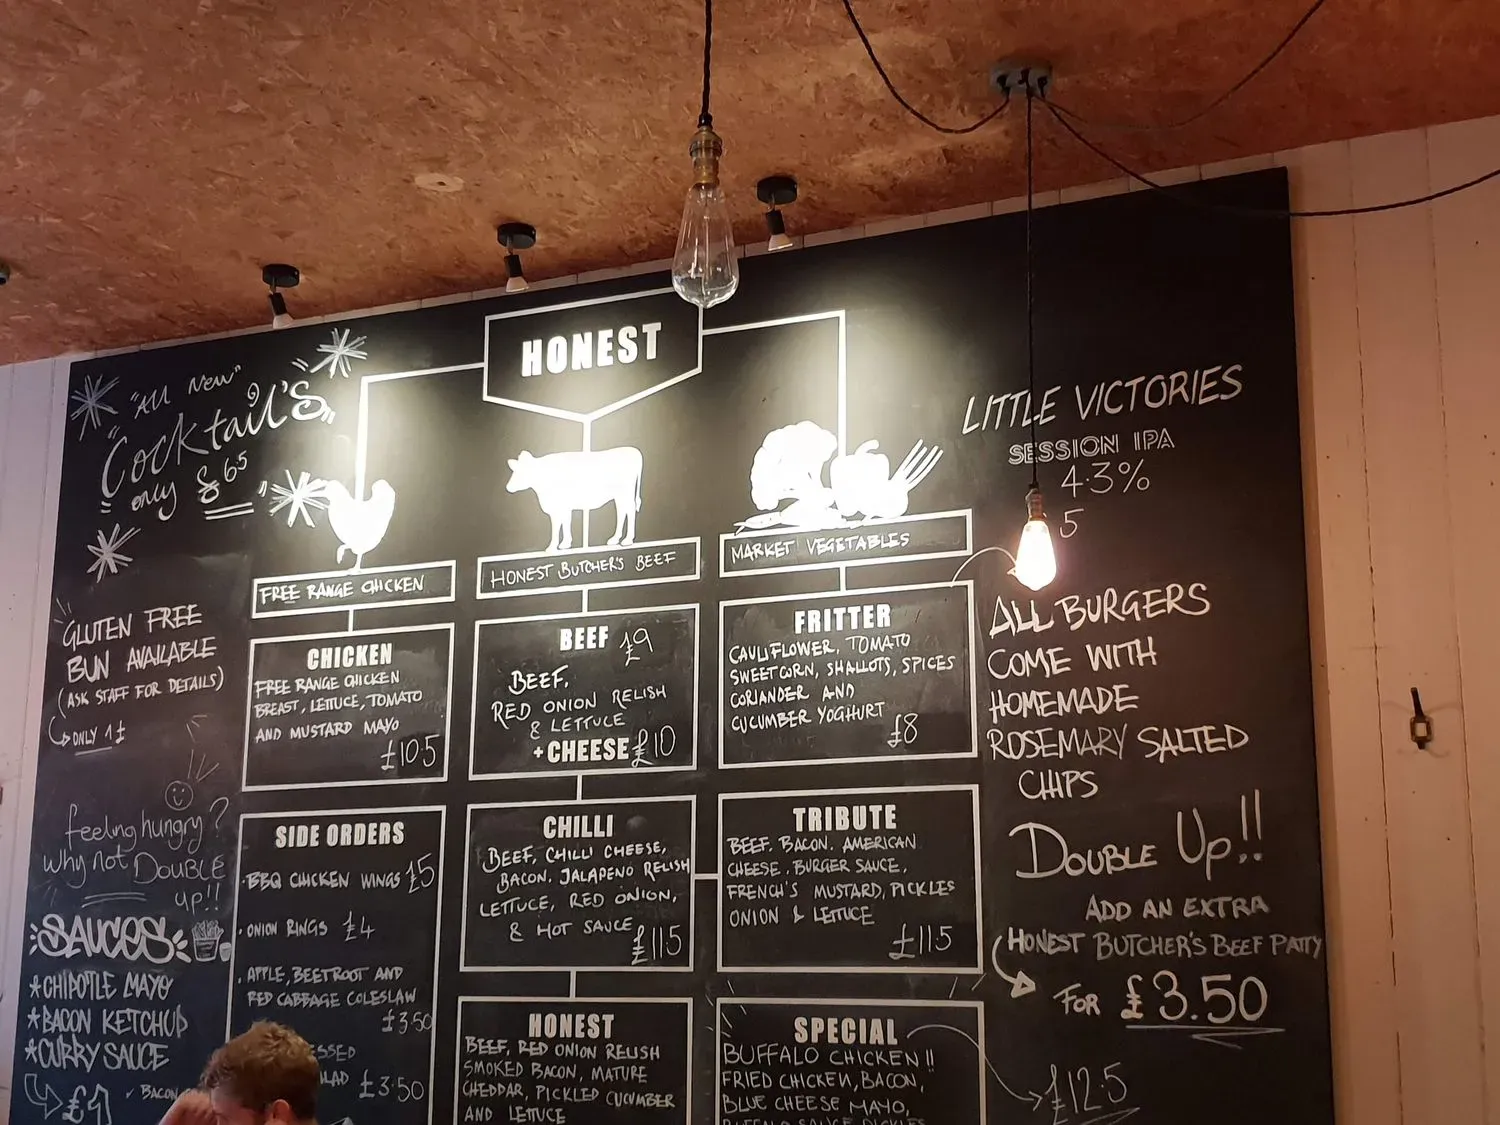 HONEST
"All New"
"Cocktail's"
only £6.5
FREE RANGE CHICKEN
HONEST BUTCHER'S BEEF
MARKET VEGETABLES
LITTLE VICTORIES
SESSION IPA
4.3%
5
GLUTEN FREE
BUN AVAILABLE
(ASK STAFF FOR DETAILS)
ONLY 1£
feeling hungry?
why not DOUBLE
up!!
SAUCES
*CHIPOTLE MAYO
*BACON KETCHUP
*CURRY SAUCE
£1
✓ BACON
CHICKEN
FREE RANGE CHICKEN
BREAST, LETTUCE, TOMATO
AND MUSTARD MAYO
£10.5
SIDE ORDERS
·BBQ CHICKEN WINGS £5
·ONION RINGS £4
·APPLE, BEETROOT AND
RED CABBAGE COLESLAW
£3.50
£3.50
BEEF £9
BEEF,
RED ONION RELISH
& LETTUCE
+CHEESE £10
CHILLI
BEEF, CHILLI CHEESE,
BACON, JALAPENO RELISH
LETTUCE, RED ONION,
& HOT SAUCE
£11.5
HONEST
BEEF, RED ONION RELISH
SMOKED BACON, MATURE
CHEDDAR, PICKLED CUCUMBER
AND LETTUCE
FRITTER
CAULIFLOWER, TOMATO
SWEETCORN, SHALLOTS, SPICES
CORIANDER AND
CUCUMBER YOGHURT
£8
TRIBUTE
BEEF, BACON, AMERICAN
CHEESE, BURGER SAUCE,
FRENCH'S MUSTARD, PICKLES
ONION & LETTUCE
£11.5
SPECIAL
BUFFALO CHICKEN!!
FRIED CHICKEN, BACON,
BLUE CHEESE MAYO,
BUFFALO SAUCE PICKLES
£12.5
ALL BURGERS
COME WITH
HOMEMADE
ROSEMARY SALTED
CHIPS
DOUBLE UP!!
ADD AN EXTRA
HONEST BUTCHER'S BEEF PATTY
FOR £3.50